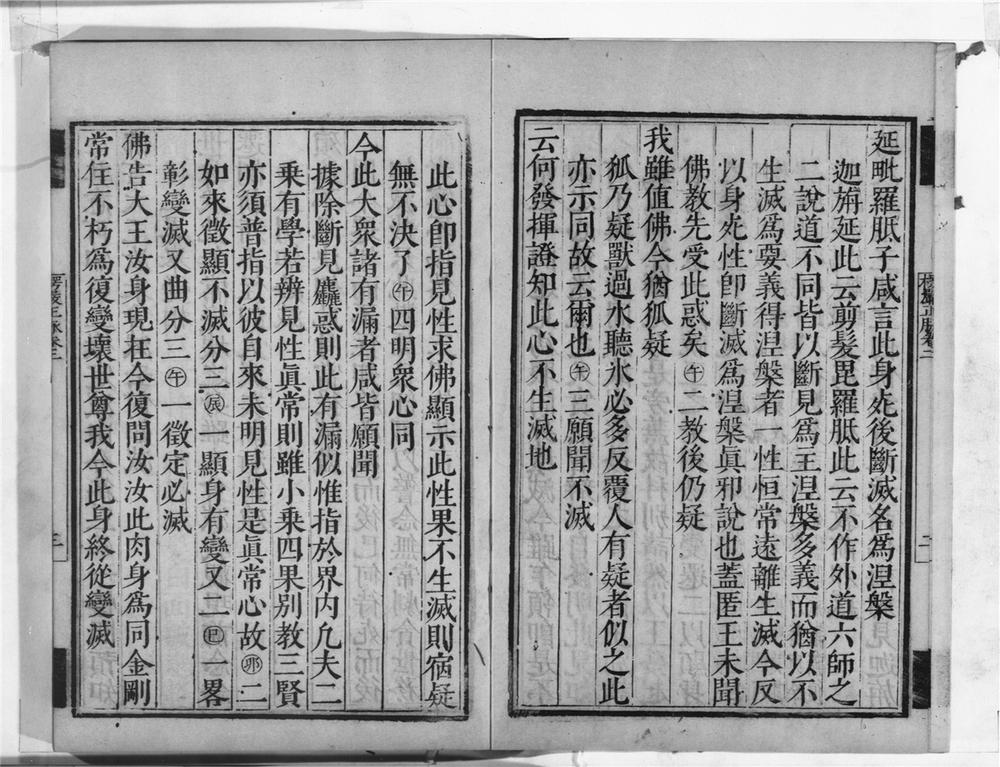 延毗羅胝子咸言此身死後斷滅名爲涅槃
迦旃延此云剪髮毘羅胝此云不作外道六師之
二說道不同皆以斷見爲王涅槃多義而猶以不
生滅爲要義得涅槃者一性恒常遠離生滅今反
以身死性卽斷滅爲涅槃眞邪說也蓋匿王未聞
佛教先受此惑矣㊉二教後仍疑
我雖值佛今猶狐疑
狐乃疑獸過水聽氷必多反覆人有疑者似之此
亦示同故云爾也午三願聞不滅
云何發揮證知此心不生滅地
此心卽指見性求佛顯示此性果不生滅則宿疑
無不決了午四明衆心同
今此大衆諸有漏者咸皆願聞
據除斷見麤惑則此有漏似惟指於界內凡夫二
乘有學若辨見性眞常則雖小乘四果別教三賢
亦須普指以彼自來未明見性是眞常心故卯二
如來徵顯不滅分三辰一顯身有變又二巳一畧
彰變滅又曲分三午一徵定必滅
佛告大王汝身現在今復問汝汝此肉身爲同金剛
常住不朽爲復變壞世尊我今此身終從變滅